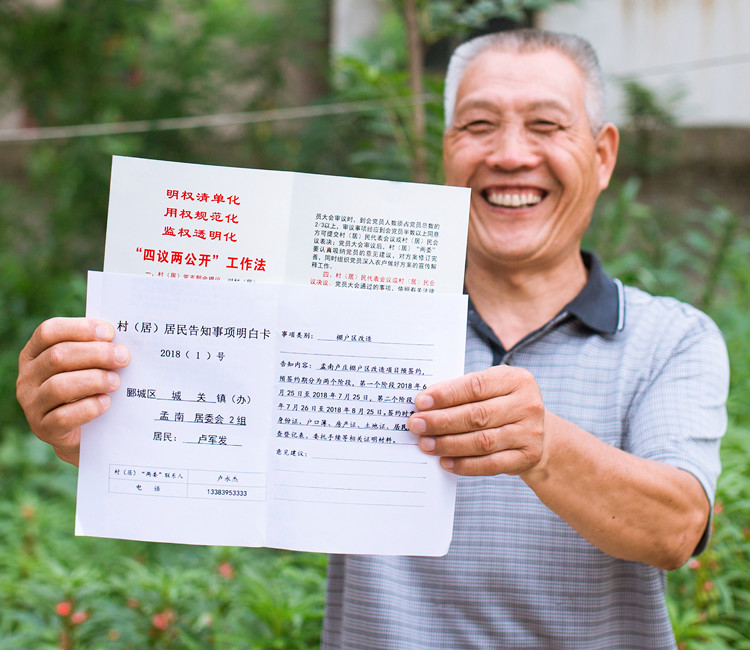 明权清单化
用权规范化
监权透明化
“四议两公开”工作法
员大会审议时，到会党员人数须占党员总数的
2/3以上，审议事项经应到会党员半数以上同意
方可提交村（居）民代表会议或村（居）民会
议表决；党员会审议后，村（居）“两委”
要认真吸纳党员的意见建议，对方案修订完
善，同时组织党员深入农户做好方案的宣传解
释工作。
四、村（居）民代表会议或村（居）民会
议决议。党员大会通过的事项，
村（居）居民告知事项明白卡
2018（1）号
郾城区 城关 镇（办）
孟南 居委会2组
居民： 卢军发
村（居）“两委”联系人 卢永杰
电 话 13383953333
事项类别： 棚户区改造
告知内容：孟南卢庄棚户区改造项目预签约，
预签约期分为两个阶段。第一个阶段2018年6
月25日至2018年7月25日，第二个阶段
年7月26日至2018年8月25日。签约时
身份证、户口簿、房产证、土地证、居民
查登记表、委托手续等相关证明材料。
意见建议：